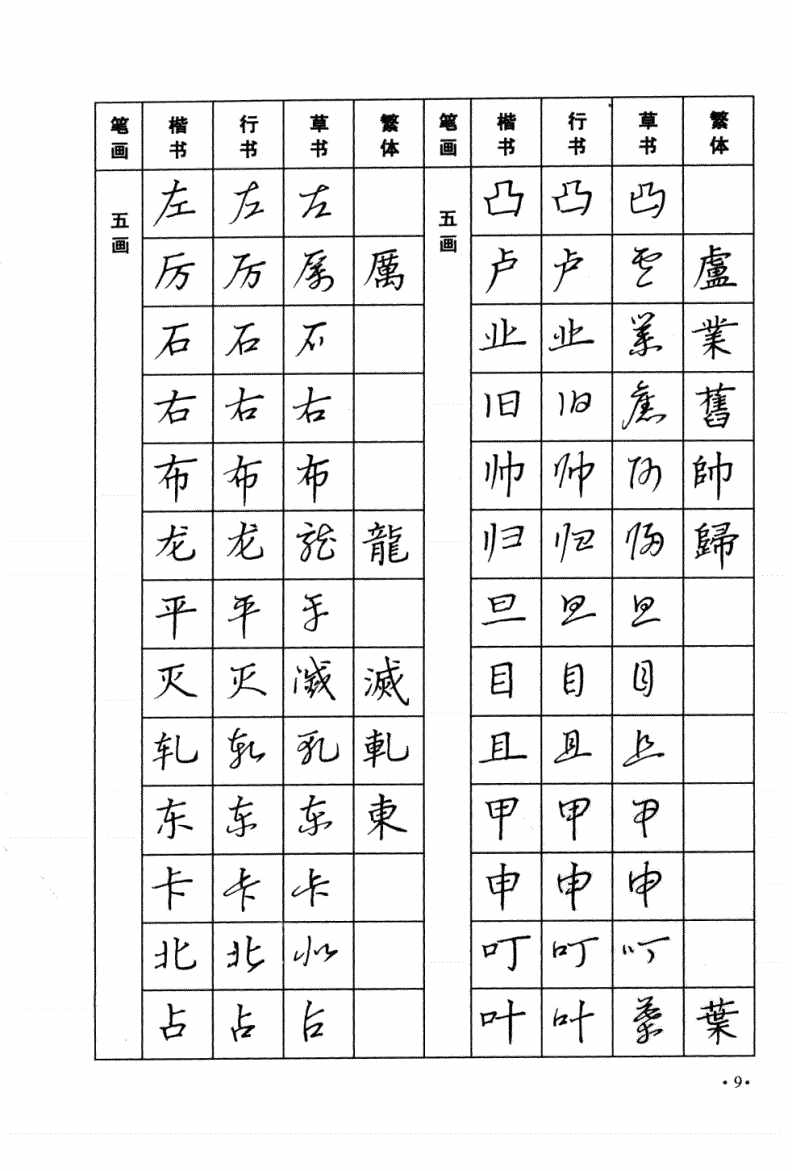 笔画 楷书 行书 草书 繁体 笔画 楷书 行书 草书 繁体
五画 左 左 左 五画 凸 凸 凸
厉 厉 厲 厲 卢 卢 盧 盧
石 石 石 业 业 業 業
右 右 右 旧 旧 舊 舊
布 布 布 帅 帅 帥 帥
龙 龙 龍 龍 归 归 歸 歸
平 平 平 旦 旦 旦
灭 灭 滅 滅 目 目 目
轧 轧 軋 軋 且 且 且
东 东 东 東 甲 甲 甲
卡 卡 卡 申 申 申
北 北 北 叮 叮 叮
占 占 占 叶 叶 葉 葉
·9·